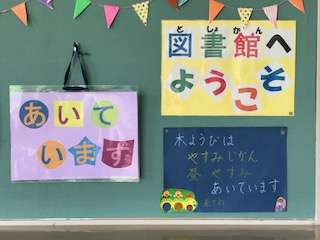 あいて
います
としょかん
図書館へ
ようこそ
木ようびは
やすみじかん
昼やすみ
あいています